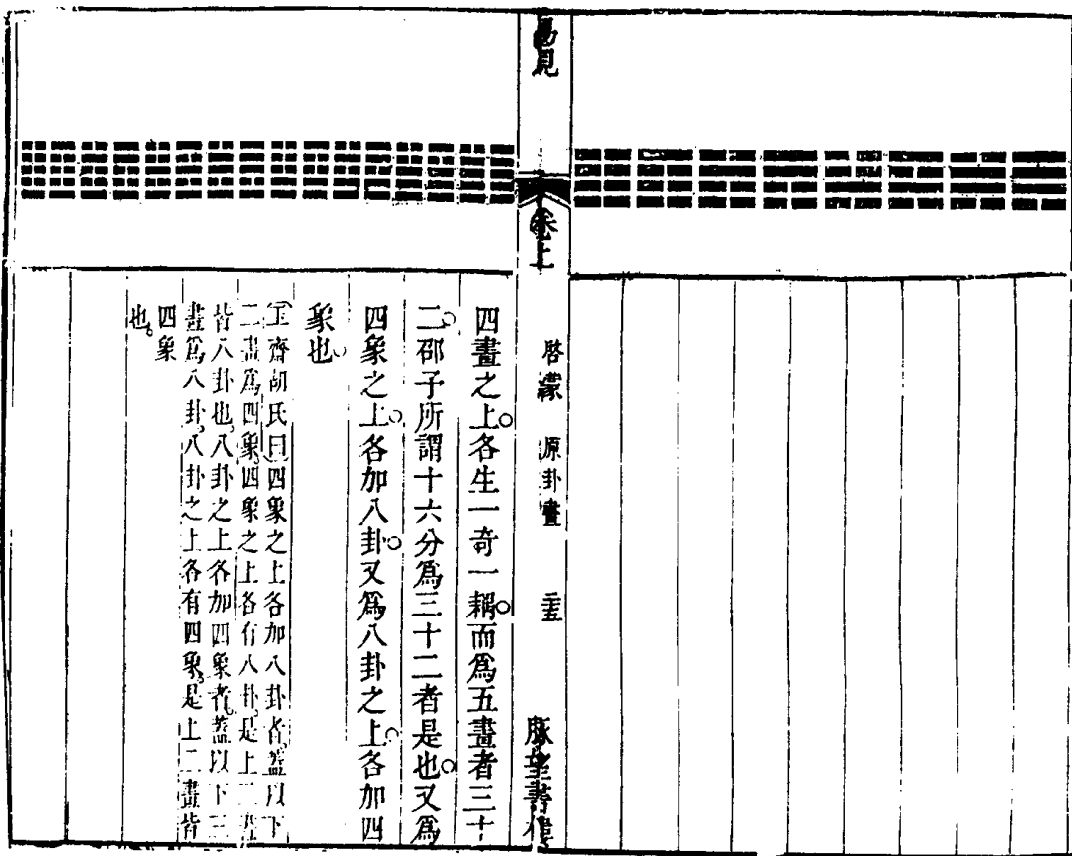 易見
卷上
啓蒙 原卦畫
脉望書樓
四畫之上各生一奇一耦而爲五畫者三十
二邵子所謂十六分爲三十二者是也又爲
四象之上各加八卦又爲八卦之上各加四
象也
玉齋胡氏曰四象之上各加八卦者蓋以下
二畫爲四象四象之上各有八卦是上三畫
皆八卦也八卦之上各加四象者蓋以下三
畫爲八卦八卦之上各有四象是上二畫皆
四象
也